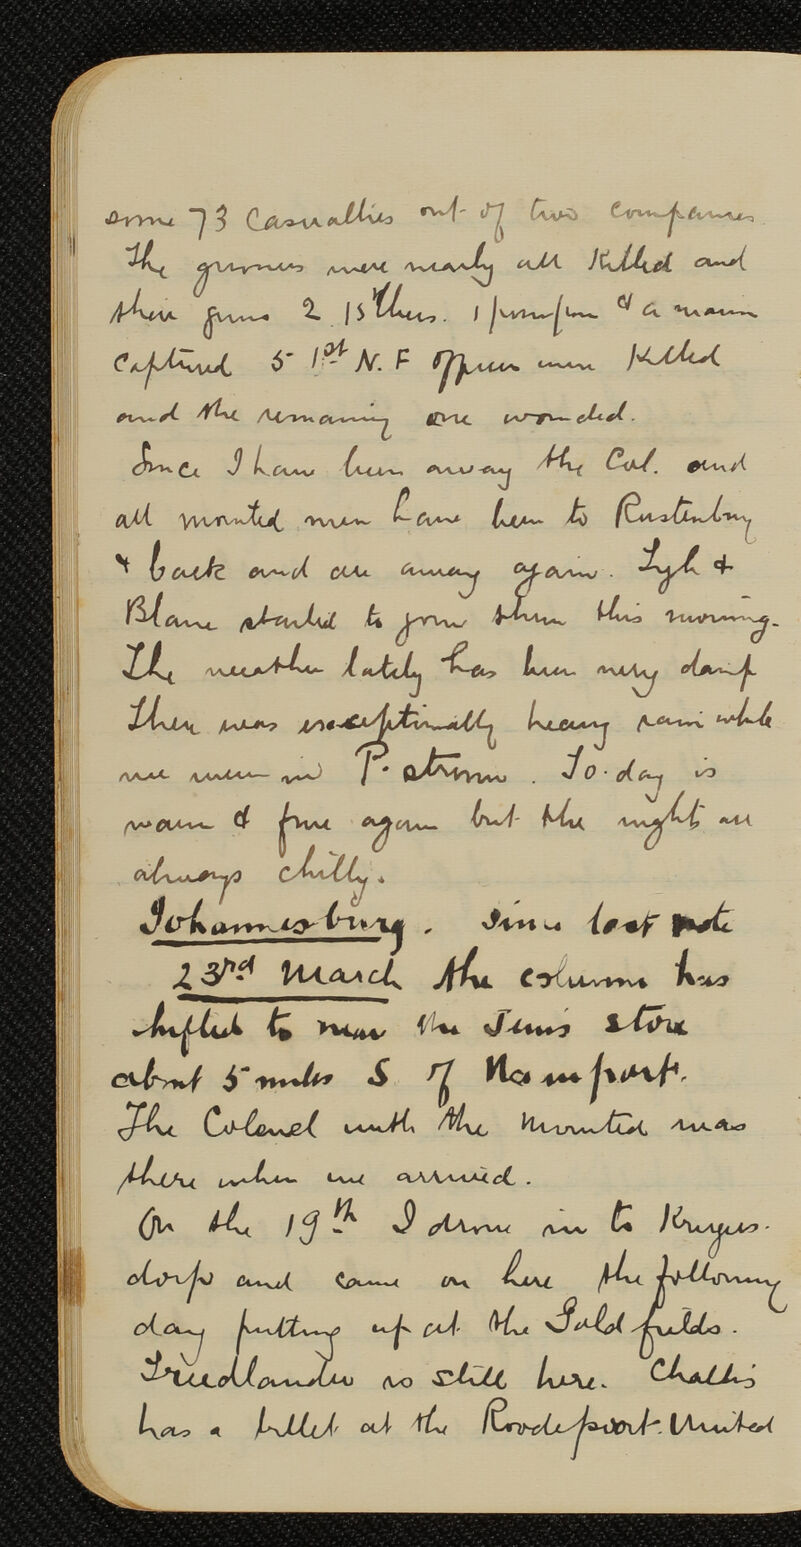 some 73 casualties out of two companies.
The gunners were nearly all killed and
their guns 2 15 thers. 1 pompom & a maxim
captured 5 1st N. F officers were killed
and the remaining one wounded.
Since I have been away the Col. and
all mounted men have been to Rustenburg
& back and are away again. &
started to join them this morning.
The weather lately has been very damp
There was exceptionally heavy rain while
we were in P. stroom. To-day is
warm & fine again but the nights are
always chilly.
Johannesburg. Since last note
23rd March the column has
shifted to near the store
about 5 miles S of
The Colonel with the mounted was
there when we arrived.
On the 19th I drove in to Krugers-
dorp and came on here the following
day putting up at the Gold fields.
Friedlander is still here. Challis
has a billet at the Roodepoort. United